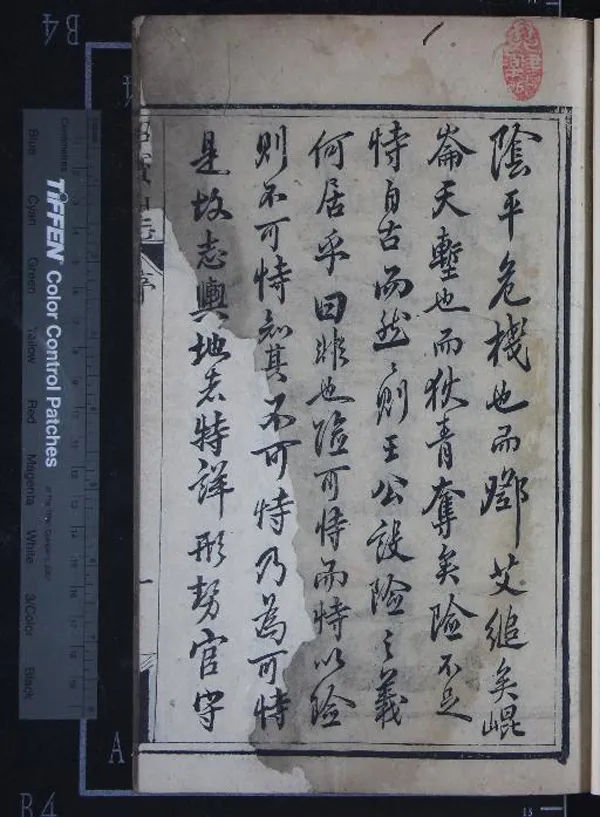 陰平危機也而鄧艾縋矣崐
崙天塹也而狄青奪矣險不足
恃自古而然〻則王公設險之義
何居乎曰非也險可恃而恃以險
則不可恃知其不可恃乃為可恃
是故志輿地者特詳形勢官守
序
一
B4
A
R4
13
TIFFEN Color Control Patches
Centimetres
Blue
Cyan
Green
Yellow
Red
Magenta
White
3/Color
Black